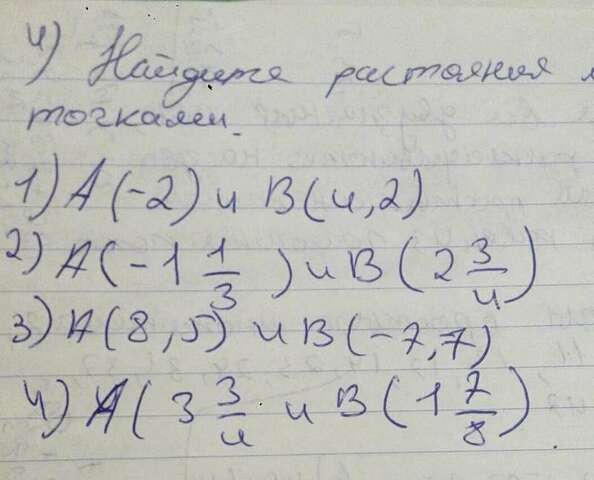 4) Найдите растояния
точками.
1) A(-2) и B(4,2)
2) A(-1 1/3) и B(2 3/4)
3) A(8,5) и B(-7,7)
4) A(3 3/4 и B(1 7/8)